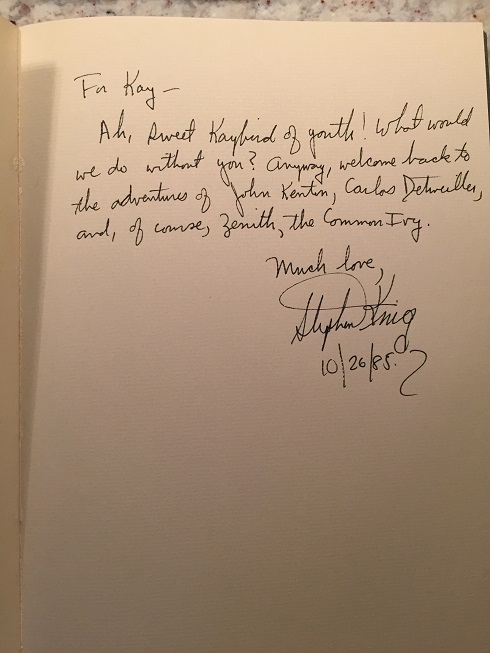 For Kay —
Ah, sweet Kaybird of youth! What would
we do without you? Anyway, welcome back to
the adventures of John Kenton, Carlos Detweiller,
and, of course, Zenith, the Common Ivy.
Much love,
Stephen King
10/26/85.